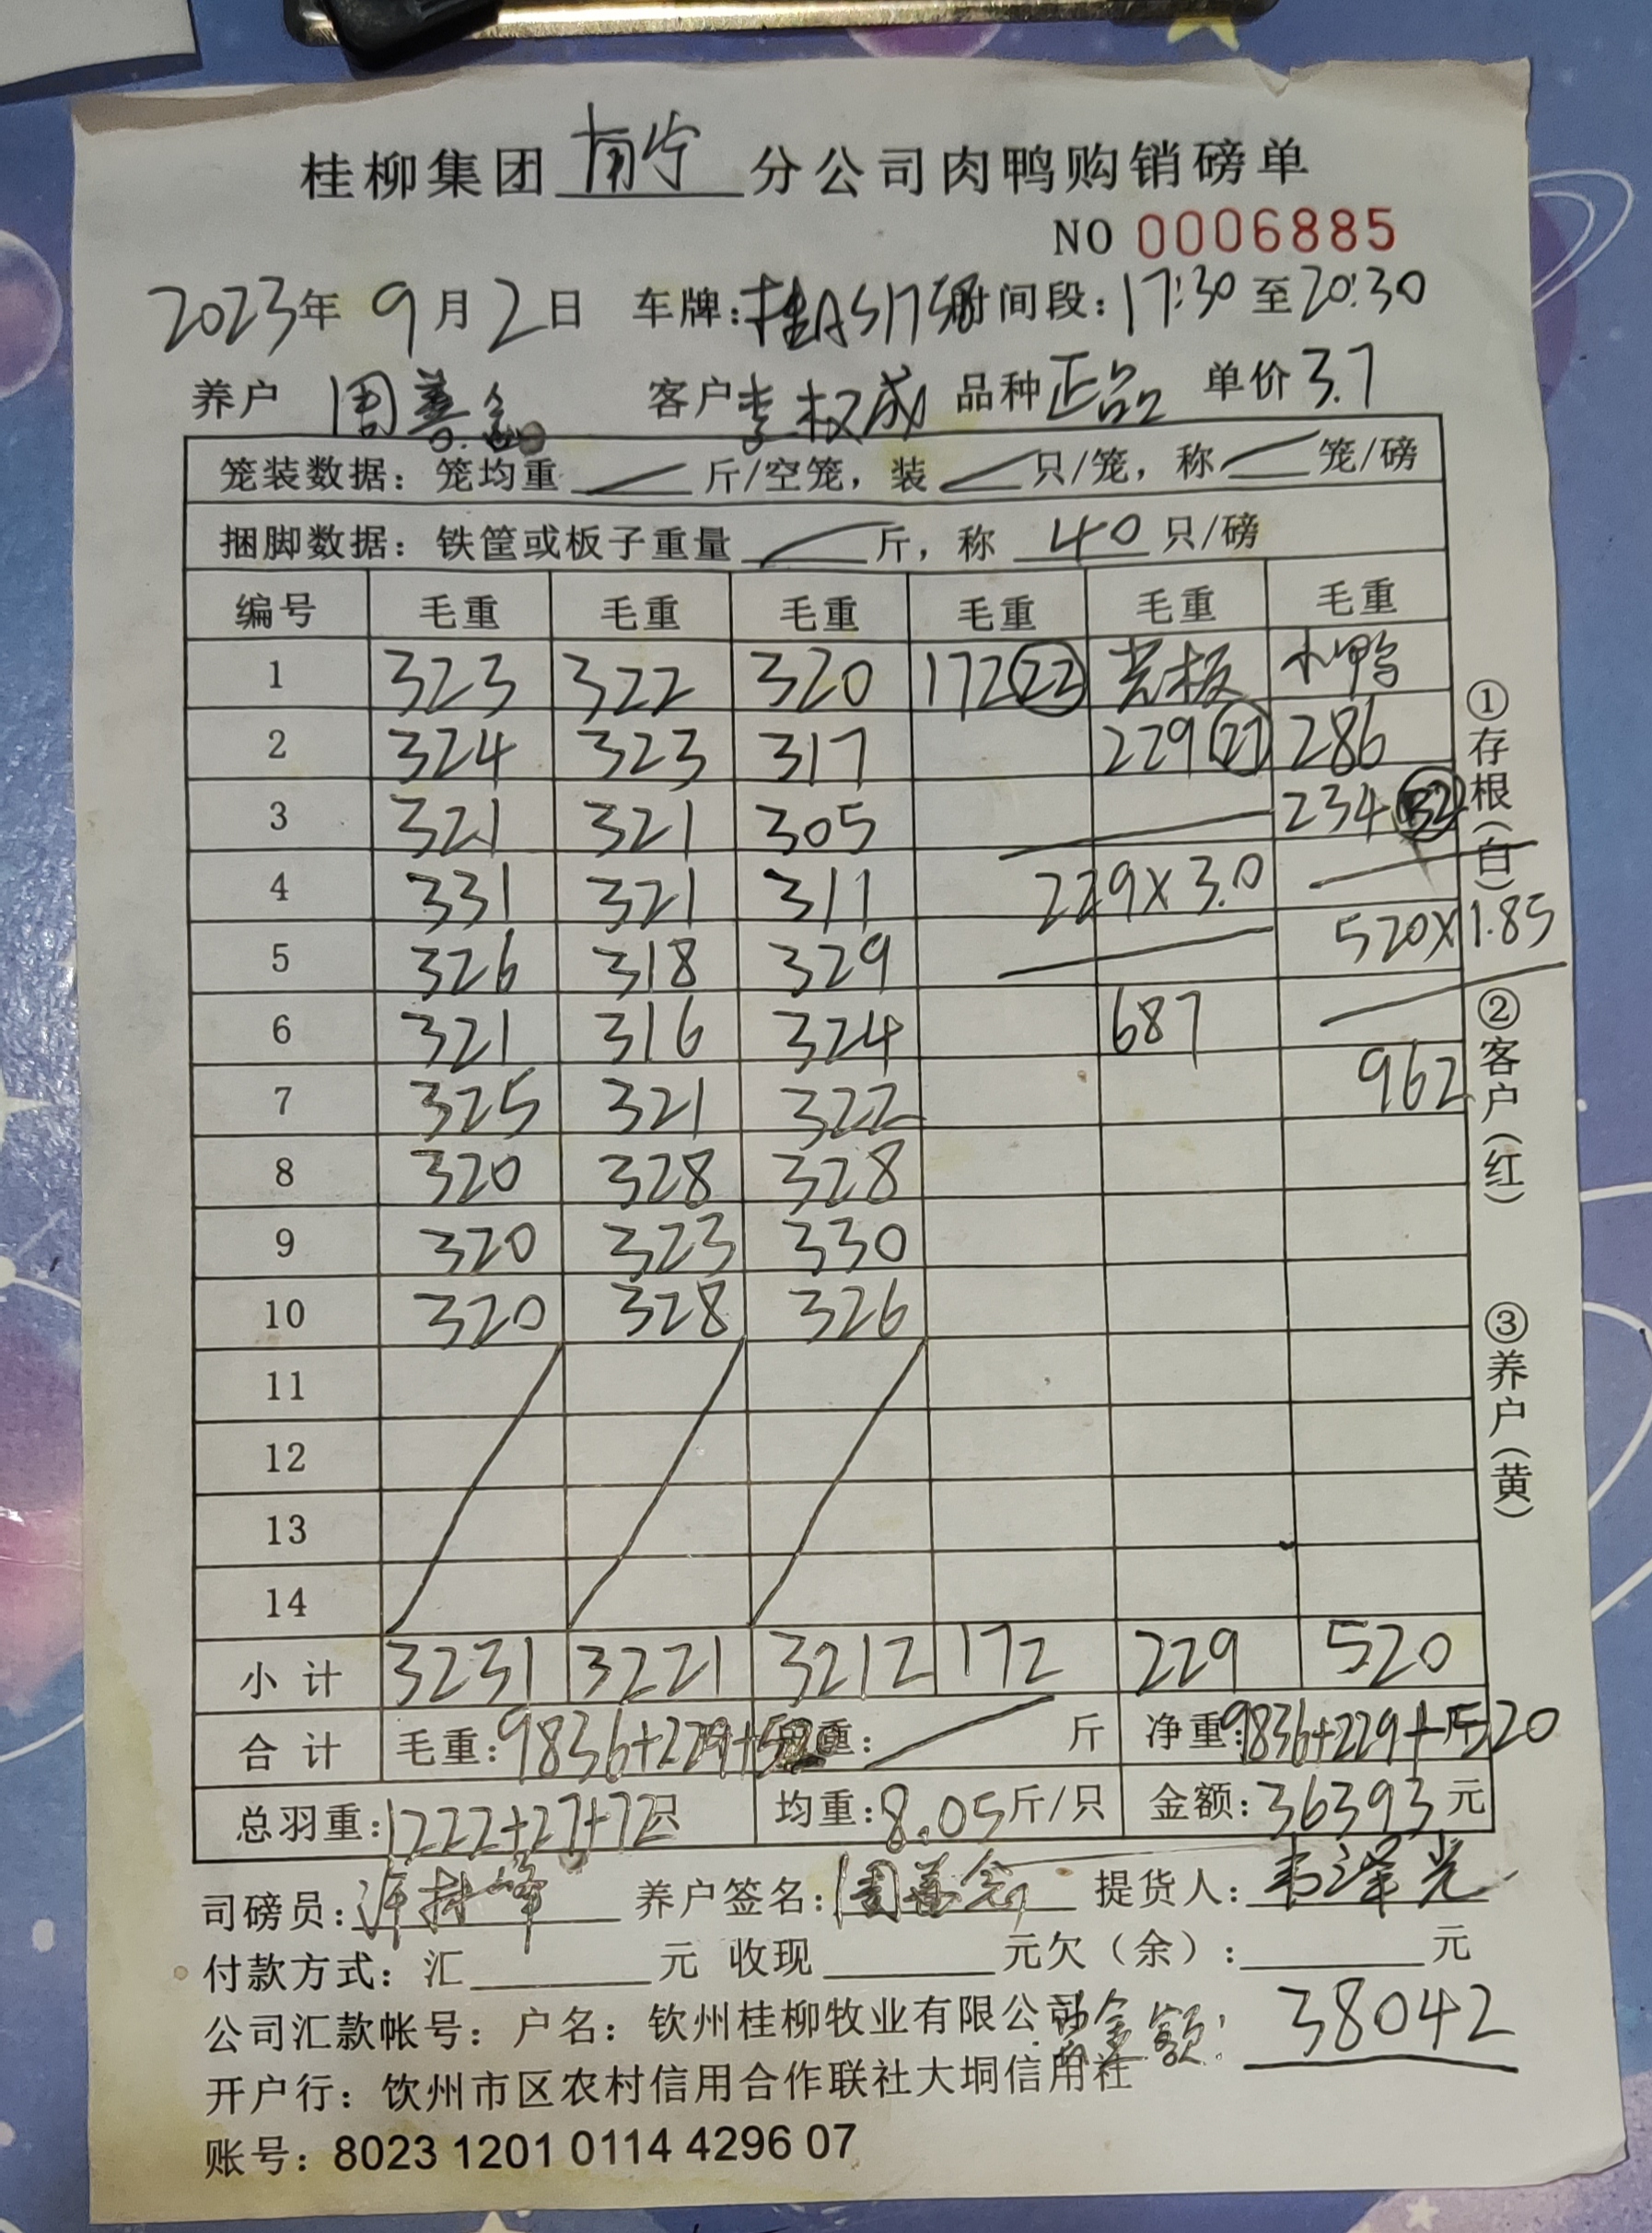 桂柳集团 南宁 分公司肉鸭购销磅单
NO 0006885
2023年 9月 2日 车牌: 时间段: 17:30 至 20:30
养户 周善 客户 李权威 品种 正品 单价 3.7
笼装数据: 笼均重 — 斤/空笼, 装 — 只/笼, 称 — 笼/磅
捆脚数据: 铁筐或板子重量 — 斤, 称 40 只/磅
编号 毛重 毛重 毛重 毛重 毛重 毛重
1 323 322 320 172 22 光板 小鸭
2 324 323 317 229 27 286
3 321 321 305 234 32
4 331 321 311 229×3.0
5 326 318 329 520×1.85
6 321 316 324 687
7 325 321 322 962
8 320 328 328
9 320 323 330
10 320 328 326
11
12
13
14
小计 3231 3221 3212 172 229 520
合计 毛重: 9836+229+520 重: — 斤 净重: 9836+229+520 斤
总羽重: 1222+27+72只 均重: 8.05斤/只 金额: 36393元
司磅员: 许树峰 养户签名: 周善 提货人: 韦泽光
付款方式: 汇 元 收现 元 欠(余): 元
公司汇款帐号: 户名: 钦州桂柳牧业有限公司 金额: 38042
开户行: 饮州市区农村信用合作联社大垌信用社
账号: 8023 1201 0114 4296 07
①存根(白)
②客户(红)
③养户(黄)